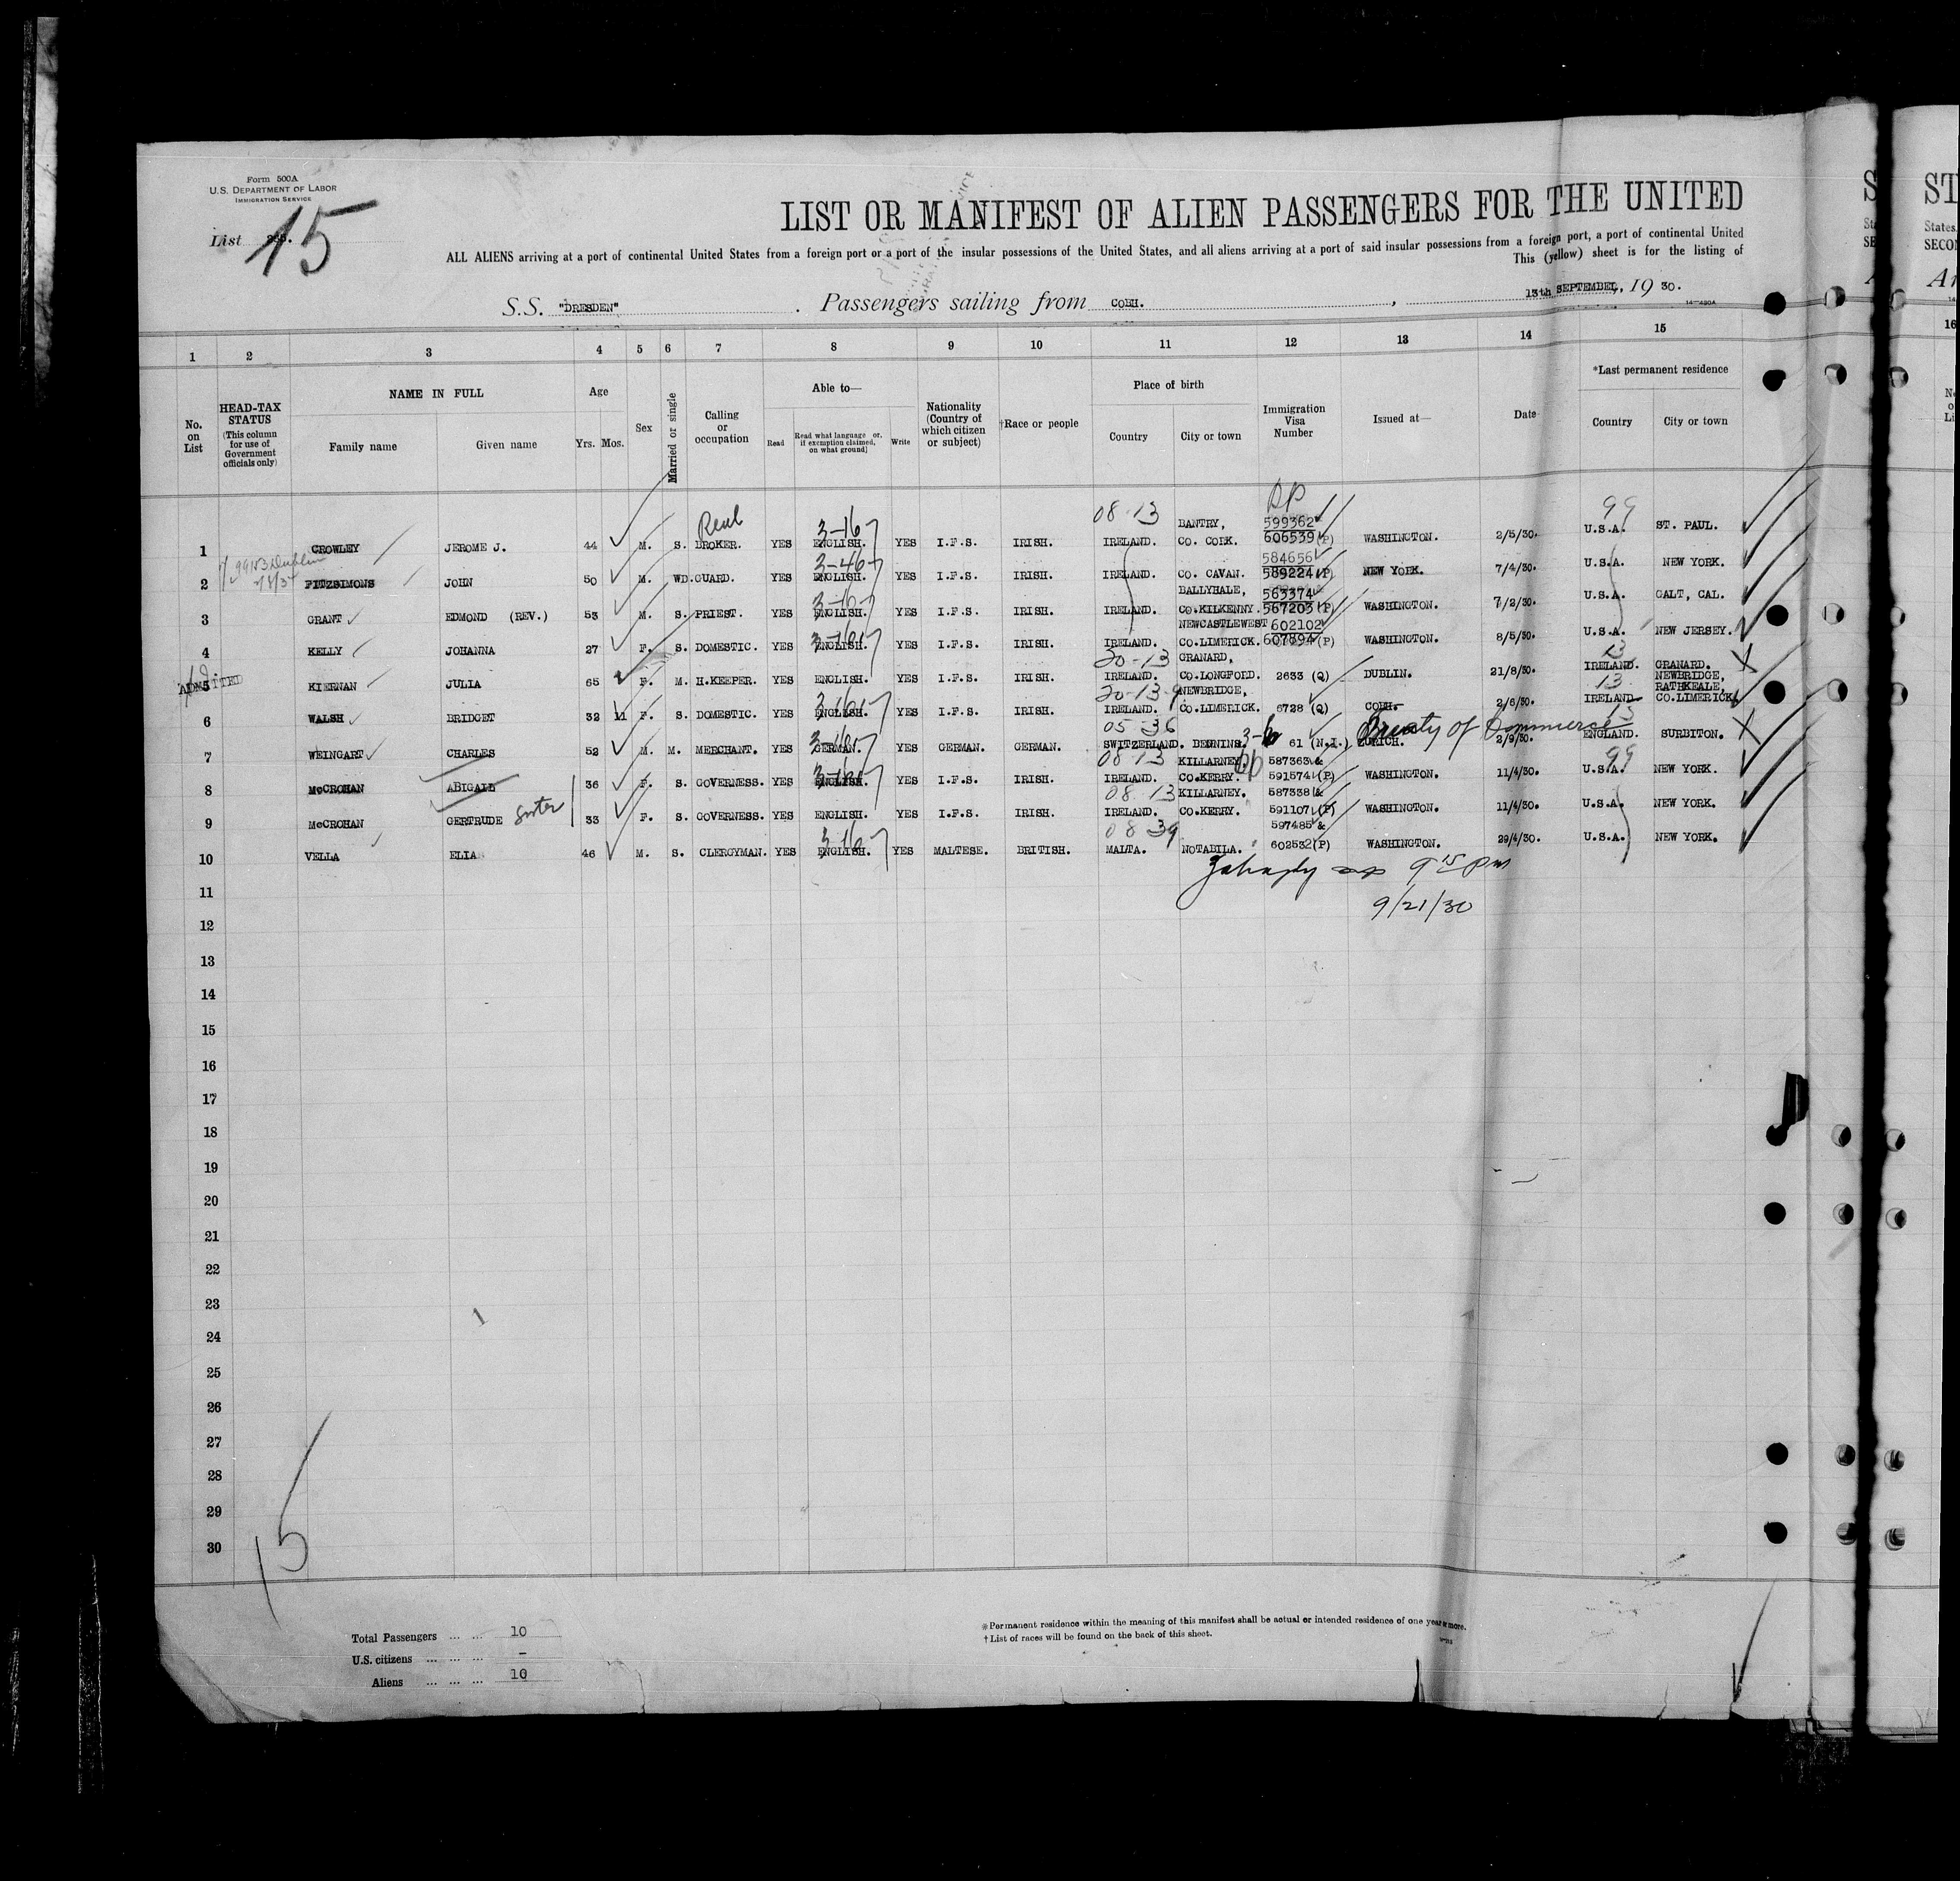 Form 500A
U.S. DEPARTMENT OF LABOR
IMMIGRATION SERVICE
List 15
LIST OR MANIFEST OF ALIEN PASSENGERS FOR THE UNITED
ALL ALIENS arriving at a port of continental United States from a foreign port or a port of the insular possessions of the United States, and all aliens arriving at a port of said insular possessions from a foreign port, a port of continental United
This (yellow) sheet is for the listing of
S.S. "DRESDEN" . Passengers sailing from COBH. , 13th SEPTEMBER, 19 30.
1 2 3 4 5 6 7 8 9 10 11 12 13 14 15
No. on List
HEAD-TAX STATUS (This column for use of Government officials only)
NAME IN FULL
Family name Given name
Age
Yrs. Mos.
Sex
Married or single
Calling or occupation
Able to—
Read Read what language or, if exemption claimed, on what ground) Write
Nationality (Country of which citizen or subject)
†Race or people
Place of birth
Country City or town
Immigration Visa Number
Issued at—
Date
*Last permanent residence
Country City or town
Real 3-16 08-13 BANTRY, 599362 99
1 CROWLEY JEROME J. 44 M. S. BROKER. YES ENGLISH. YES I.F.S. IRISH. IRELAND. CO. CORK. 606539 (P) WASHINGTON. 2/5/30. U.S.A. ST. PAUL.
3-46 584656
2 FITZSIMONS JOHN 50 M. WD. GUARD. YES ENGLISH. YES I.F.S. IRISH. IRELAND. CO. CAVAN. 589224 (P) NEW YORK. 7/4/30. U.S.A. NEW YORK.
BALLYHALE, 563374
3 GRANT EDMOND (REV.) 53 M. S. PRIEST. YES ENGLISH. YES I.F.S. IRISH. IRELAND. CO.KILKENNY. 567203 (P) WASHINGTON. 7/2/30. U.S.A. GALT, CAL.
NEWCASTLEWEST 602102
4 KELLY JOHANNA 27 F. S. DOMESTIC. YES ENGLISH. YES I.F.S. IRISH. IRELAND. CO.LIMERICK. 607894 (P) WASHINGTON. 8/5/30. U.S.A. NEW JERSEY.
20-13 GRANARD, 13
ADMITTED
5 KIERNAN JULIA 65 F. M. H.KEEPER. YES ENGLISH. YES I.F.S. IRISH. IRELAND. CO.LONGFORD. 2633 (Q) DUBLIN. 21/8/30. IRELAND. GRANARD.
20-13 NEWBRIDGE, 13 NEWBRIDGE, RATHKEALE,
6 WALSH BRIDGET 32 11 F. S. DOMESTIC. YES ENGLISH. YES I.F.S. IRISH. IRELAND. CO.LIMERICK. 6728 (Q) COBH. 2/6/30. IRELAND. CO.LIMERICK.
05-36 Treaty of Commerce
7 WEINGART CHARLES 52 M. M. MERCHANT. YES GERMAN. YES GERMAN. GERMAN. SWITZERLAND. 61 (N.I.) ZURICH. 2/9/30. ENGLAND. SURBITON.
08-13 KILLARNEY, 587363 & 99
8 McCROHAN ABIGAIL 36 F. S. GOVERNESS. YES ENGLISH. YES I.F.S. IRISH. IRELAND. CO.KERRY. 591574 (P) WASHINGTON. 11/4/30. U.S.A. NEW YORK.
08-13 KILLARNEY. 587338 &
9 McCROHAN GERTRUDE Sister 33 F. S. GOVERNESS. YES ENGLISH. YES I.F.S. IRISH. IRELAND. CO.KERRY. 591107 (P) WASHINGTON. 11/4/30. U.S.A. NEW YORK.
3-16 08 39 597485 &
10 VELLA ELIAS 46 M. S. CLERGYMAN. YES ENGLISH. YES MALTESE. BRITISH. MALTA. NOTABILA. 602532 (P) WASHINGTON. 29/4/30. U.S.A. NEW YORK.
9 15 pm
11
9/21/30
12
13
14
15
16
17
18
19
20
21
22
23
24
25
26
27
28
29
30
15
Total Passengers ... ... 10
U.S. citizens ... ... ... -
Aliens ... ... ... 10
*Permanent residence within the meaning of this manifest shall be actual or intended residence of one year or more.
†List of races will be found on the back of this sheet.